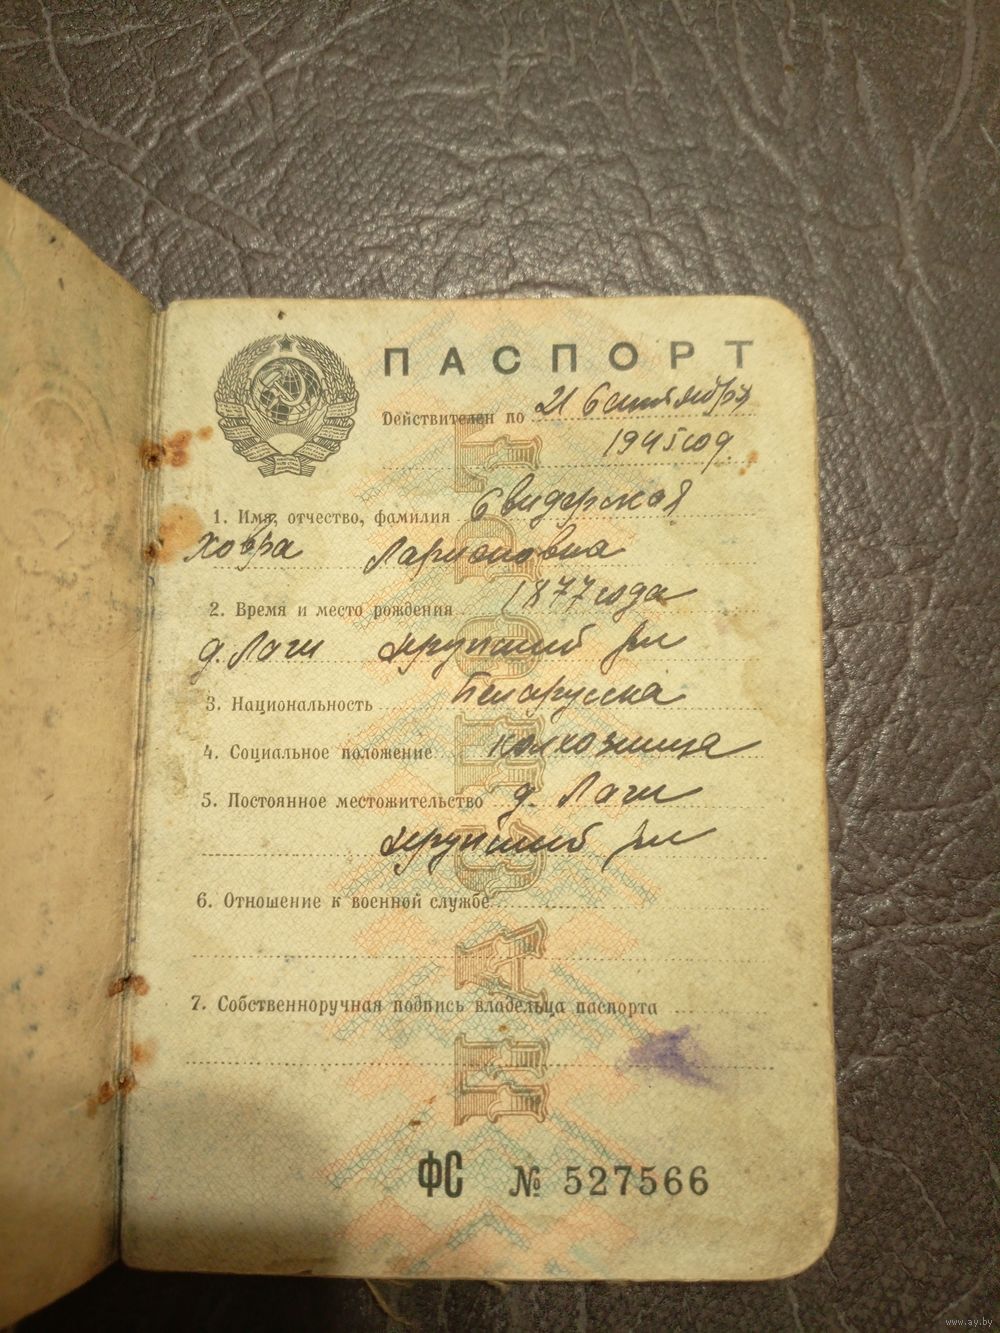 ПАСПОРТ
Действителен по 21 Сентября
1945 год.
1. Имя, отчество, фамилия Свидерская
Ховра Ларионовна
2. Время и место рождения 1877 года
д. Лаги Крупский р-н
3. Национальность Беларуска
4. Социальное положение колхозница
5. Постоянное местожительство д. Лаги
Крупский р-н
6. Отношение к военной службе
7. Собственноручная подпись владельца паспорта
ФС № 527566
ПАСПОРТ
www.ay.by